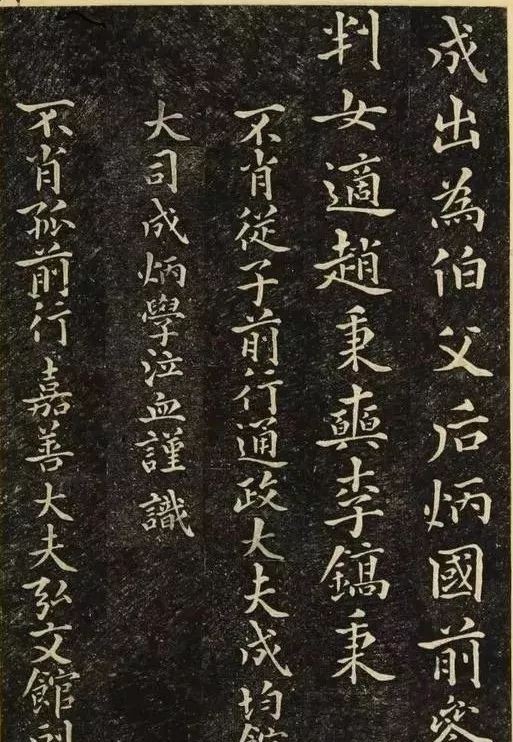 成出為伯父后炳國前參
判女適趙秉奭李鎬秉
不肖從子前行通政大夫成均館
大司成炳學泣血謹識
不肖孤前行嘉善大夫弘文館副